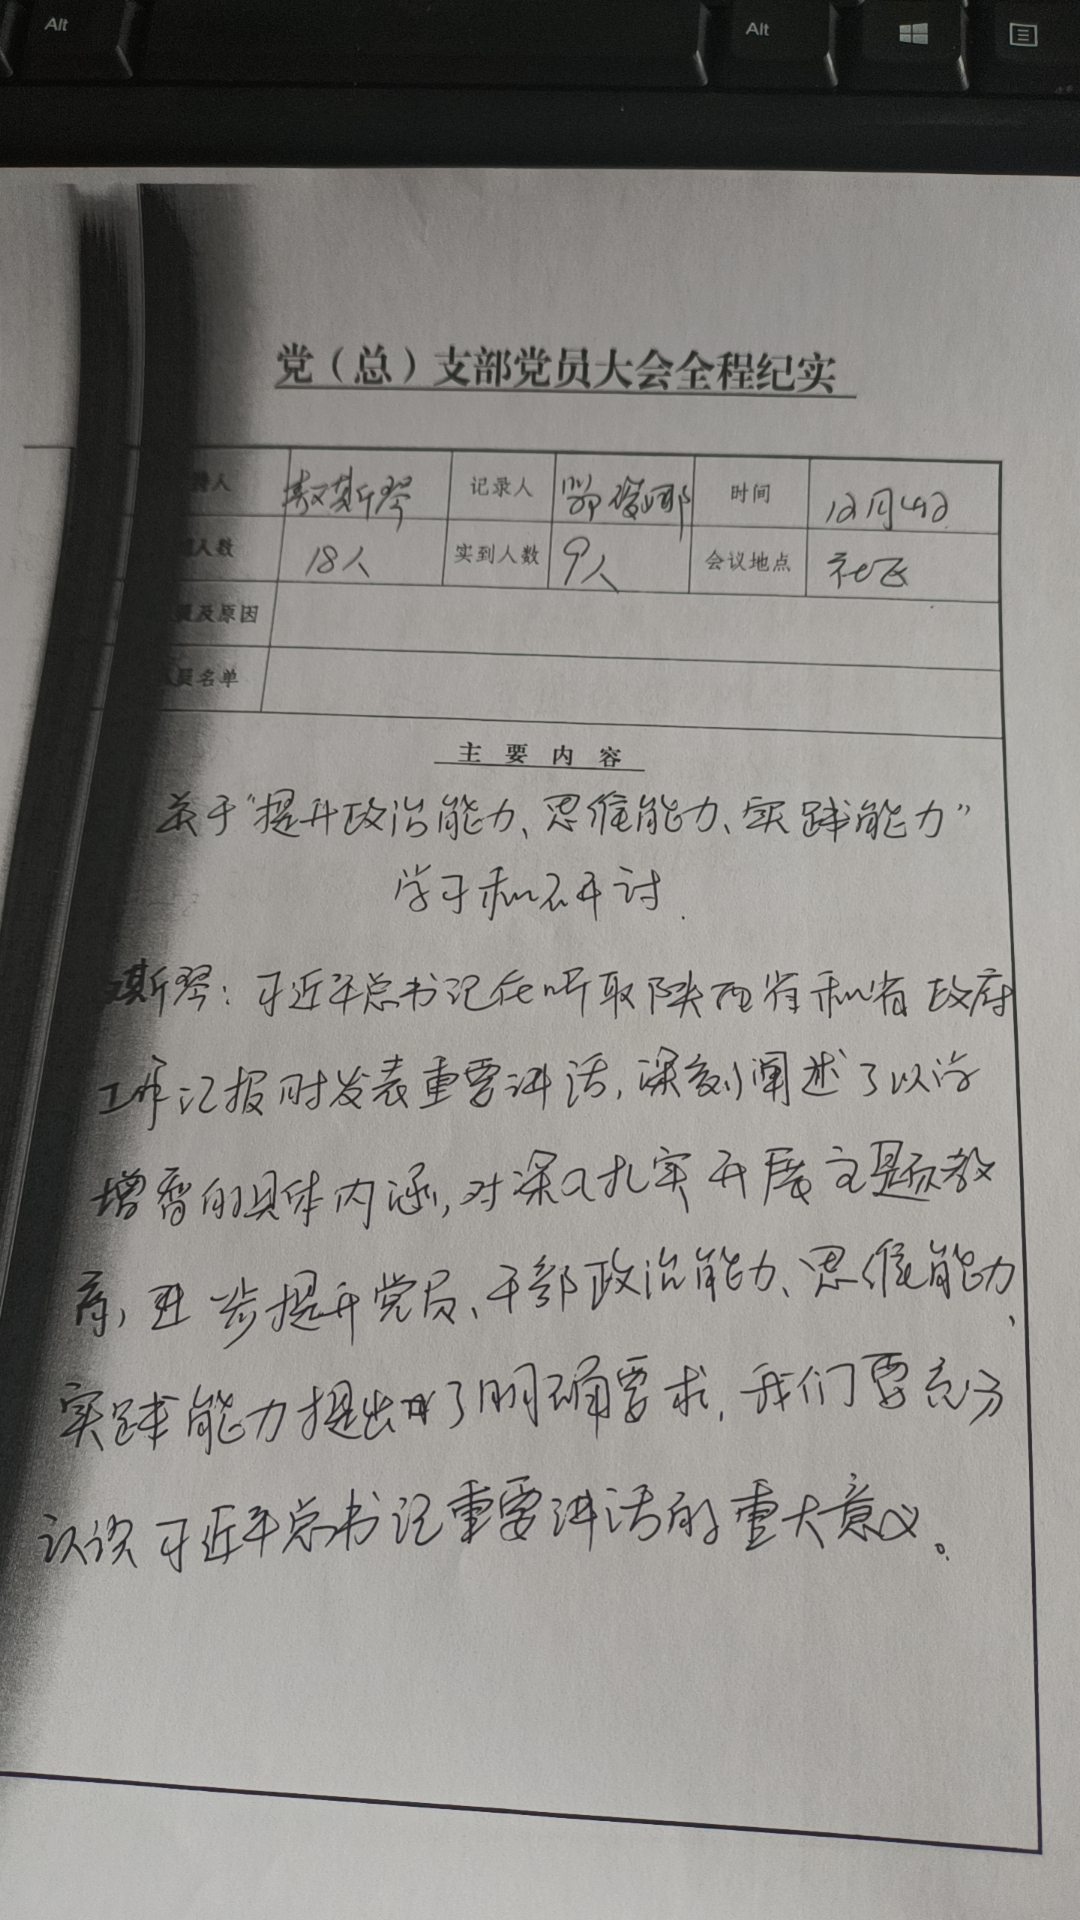 Alt
Alt
党（总）支部党员大会全程纪实
人 敖其斯琴 记录人 时间 12月4日
人数 18人 实到人数 9人 会议地点 社区
及原因
员名单
主要内容
关于“提升政治能力、思维能力、实践能力”
学习和研讨.
其斯琴：习近平总书记在听取陕西省和省政府
工作汇报时发表重要讲话，深刻阐述了以学
增智的具体内涵，对深入扎实开展主题教
育，进一步提升党员、干部政治能力、思维能力、
实践能力提出了明确要求，我们要充分
认识习近平总书记重要讲话的重大意义。